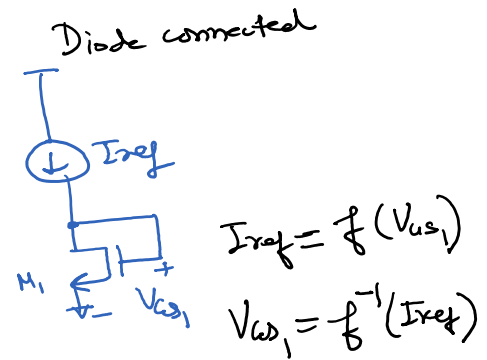 Diode connected
Iref
M1
+
VGS1
-
Iref = f(VGS1)
VGS1 = f^-1(Iref)